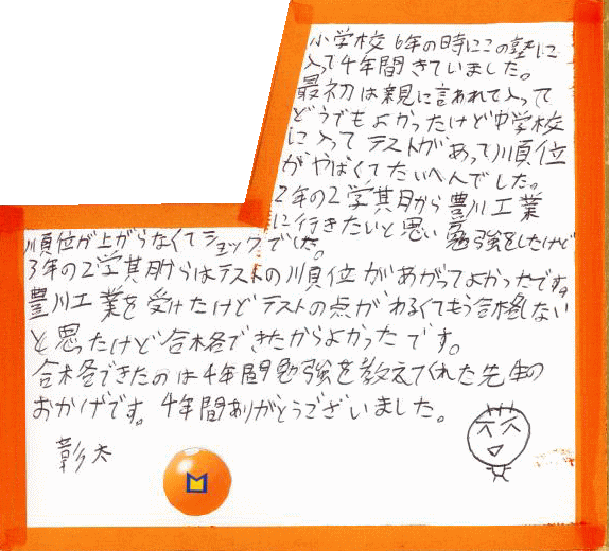 小学校6年の時にこの塾に
入って4年間きていました。
最初は親に言われて入って
どうでもよかったけど中学校
に入ってテストがあって順位
がやばくてたいへんでした。
2年の2学期から豊川工業
に行きたいと思い勉強をしたけど
順位が上がらなくてショックでした。
3年の2学期からはテストの順位があがってよかったです。
豊川工業を受けたけどテストの点がわるくてもう合格しない
と思ったけど合格できたからよかったです。
合格できたのは4年間勉強を教えてくれた先生の
おかげです。4年間ありがとうございました。
彰太